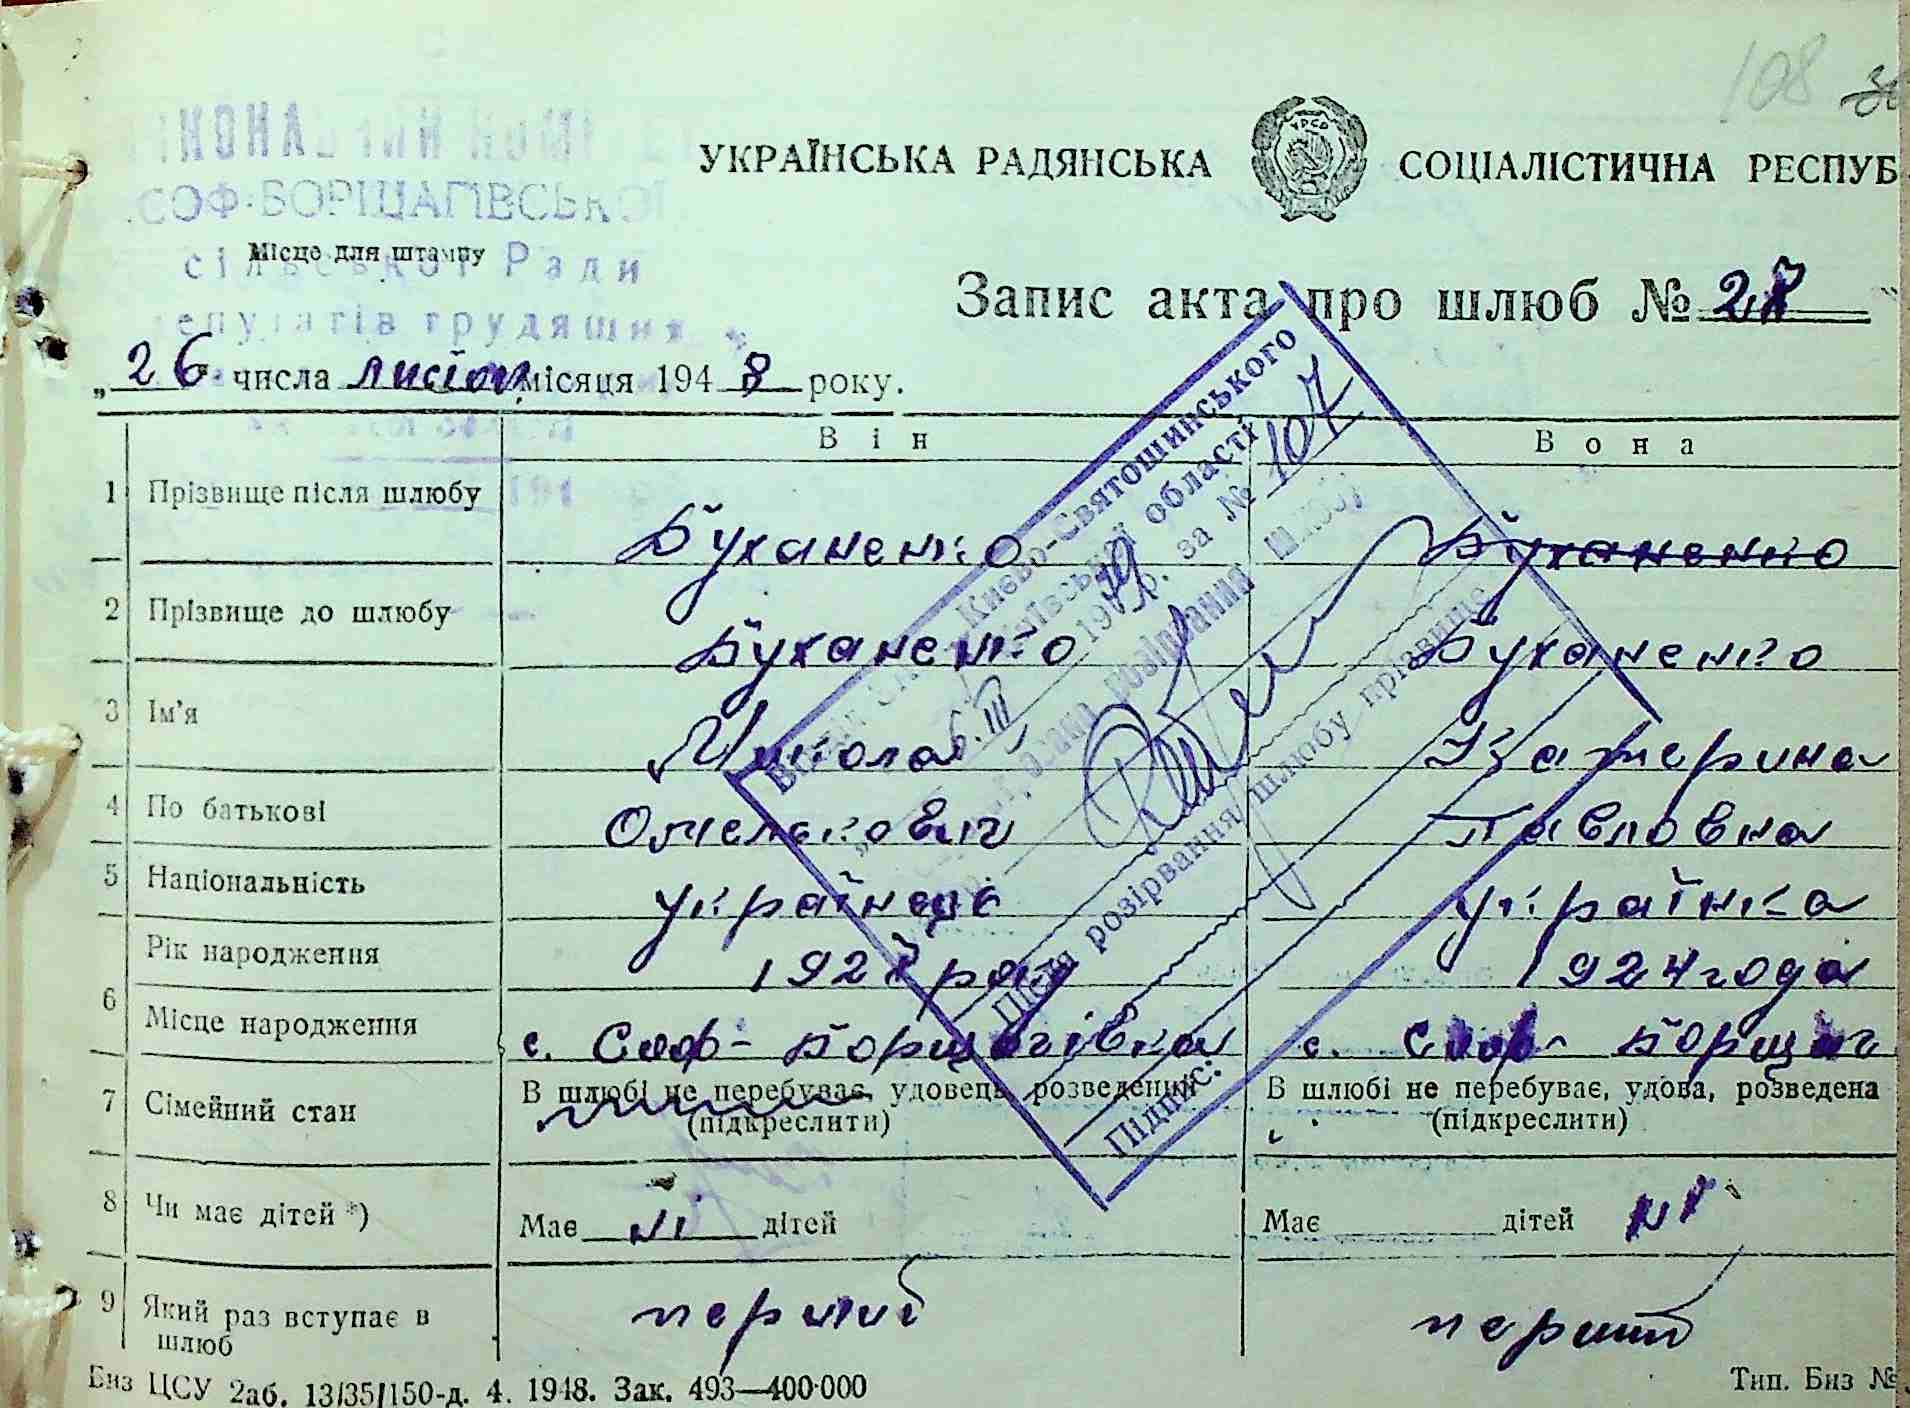 108
УКРАЇНСЬКА РАДЯНСЬКА СОЦІАЛІСТИЧНА РЕСПУБ
СОФ-БОРЩАГІВСЬКОЇ
Місце для штампу
сільської Ради
депутатів трудящих
Запис акта про шлюб № 27
„ 26 числа листоп. місяця 1948 року.
Він Вона
1 Прізвище після шлюбу Буханенко Буханенко
2 Прізвище до шлюбу Буханенко Буханенко
3 Ім'я Микола Катерина
4 По батькові Омелькович Павловна
5 Національність українець українка
6 Рік народження 1923 року 1924 года
Місце народження с. Соф- Борщагівка с. Соф- Борщаг
7 Сімейний стан В шлюбі не перебуває, удовець, розведений В шлюбі не перебуває, удова, розведена
(підкреслити) (підкреслити)
8 Чи має дітей *) Має ні дітей Має дітей ні
9 Який раз вступає в шлюб перший перший
Києво-Святошинського
Київської області
6. III 1979 р. за № 107
розірвання шлюбу
Після розірвання шлюбу прізвище
Підпис:
Биз ЦСУ 2аб. 13/35/150-д. 4. 1948. Зак. 493—400·000 Тип. Биз №